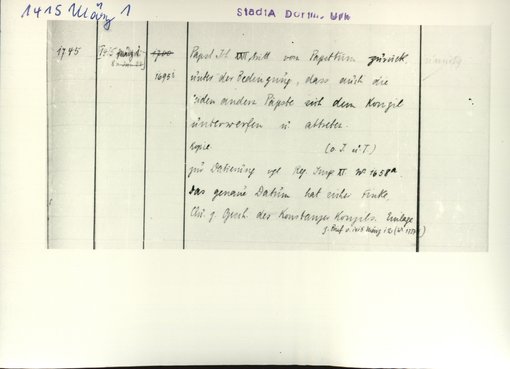 1415 März 1
StadtA Dortm. Urk
1745
1700
1695b
Papst Joh XXIII. tritt vom Papsttum zurück,
unter der Bedingung, dass auch die
beiden andern Päpste sich dem Konzil
unterwerfen u abtreten.
Kopie (o J. u T.)
zur Datierung vgl Reg. Imp XI. No 1658a
Das genaue Datum hat Finke,
des Konstanzer Konzils. Einlage
z. 1415 März